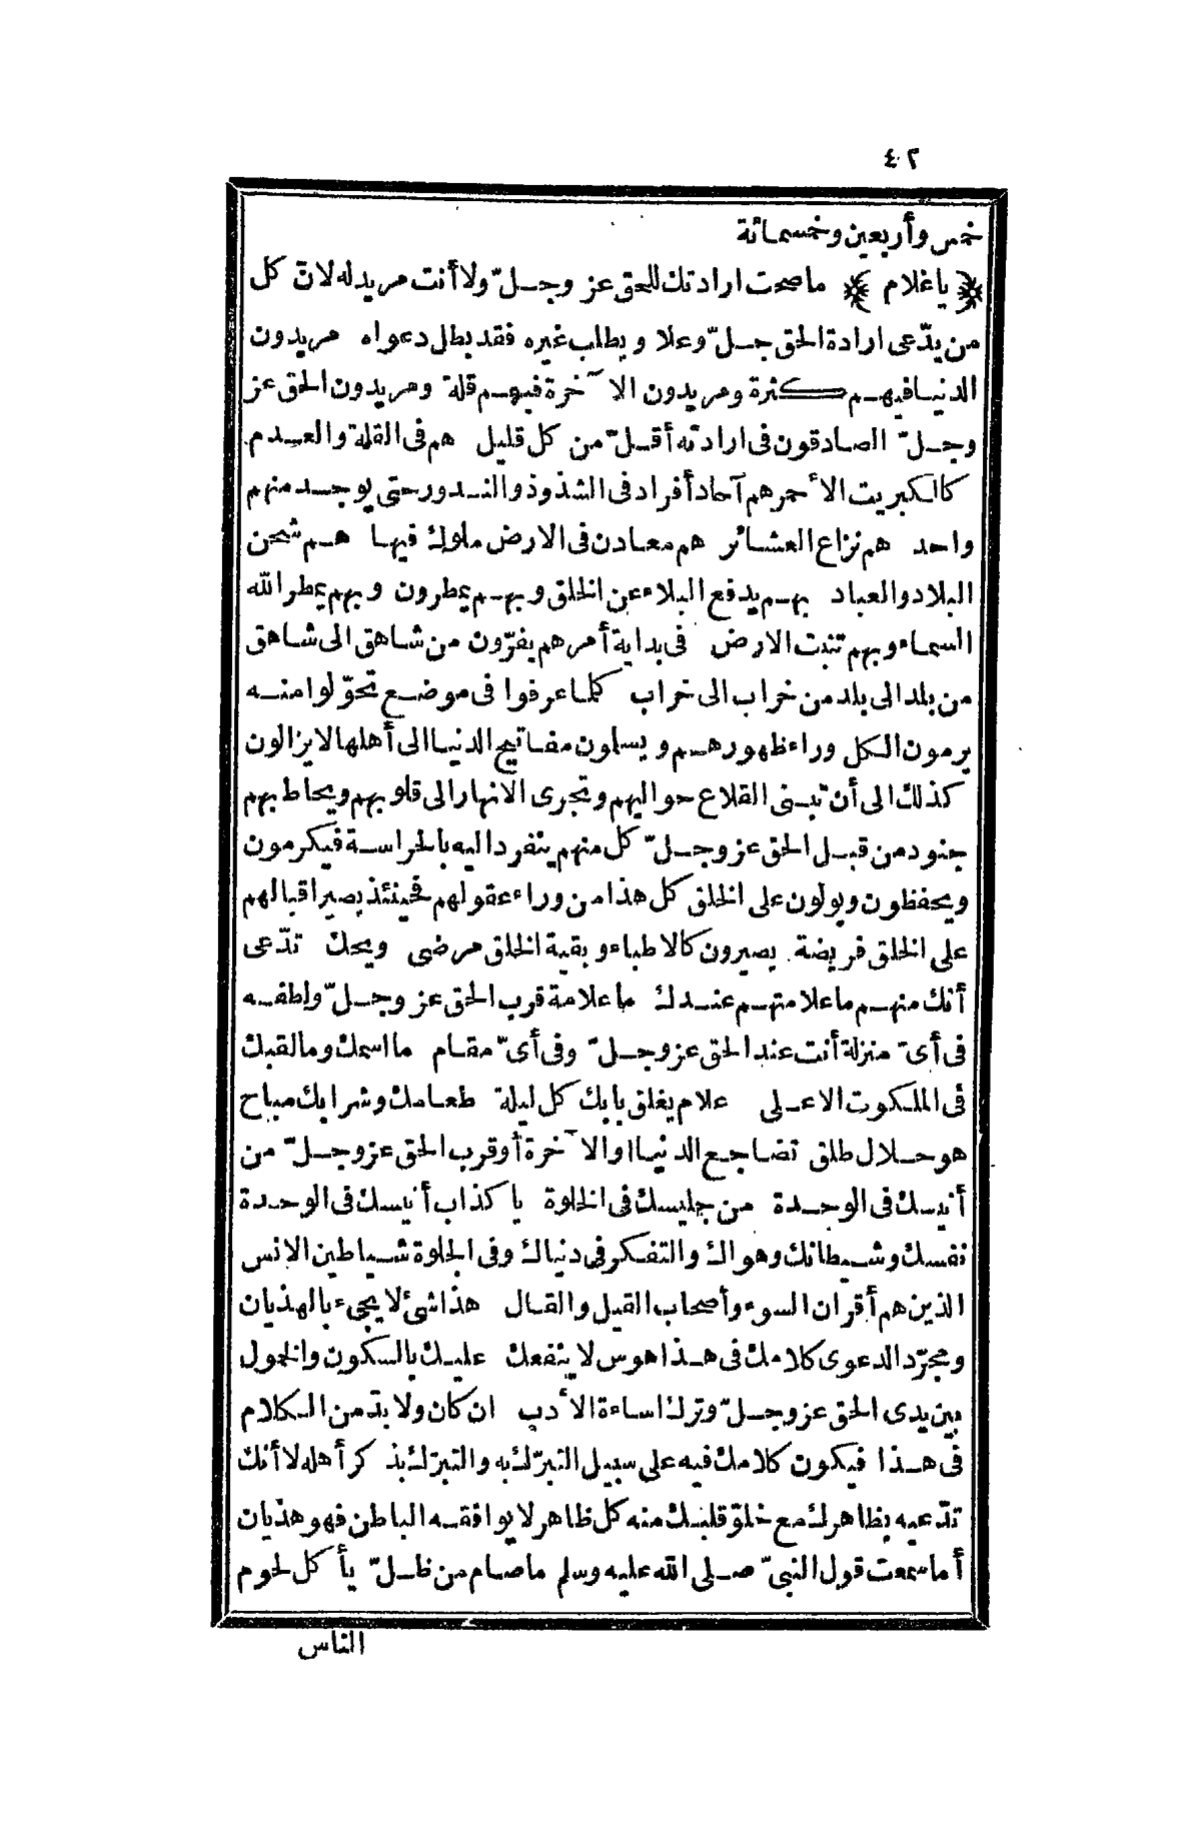 ٤٢
خمس وأربعين وخمسمائة
﴿ياغلام﴾ ماصحت ارادتك للحق عز وجلّ ولا أنت مريد له لانّ كل
من يدّعى ارادة الحق جلّ وعلا ويطلب غيره فقد بطل دعواه مريدون
الدنيا فيهم كثرة ومريدون الآخرة فيهم قلة ومريدون الحق عز
وجلّ الصادقون فى ارادته أقلّ من كل قليل هم فى القلة والعدم
كالكبريت الأحمر هم آحاد أفراد فى الشذوذ والندور حتى يوجد منهم
واحد هم نزاع العشائر هم معادن فى الارض ملوك فيها هم شحن
البلاد والعباد بهم يدفع البلاء عن الخلق وبهم يمطرون وبهم يمطر الله
السماء وبهم تنبت الارض فى بداية أمرهم يفرّون من شاهق الى شاهق
من بلد الى بلد من خراب الى خراب كلما عرفوا فى موضع تحوّلوا منه
يرمون الكل وراء ظهورهم ويسلون مفاتيح الدنيا الى أهلها لايزالون
كذلك الى أن تبنى القلاع حواليهم وتجرى الانهار الى قلوبهم ويحاط بهم
جنود من قبل الحق عز وجلّ كل منهم ينفرد اليه بالحراسة فيكرمون
ويحفظون ويولون على الخلق كل هذا من وراء عقولهم فحينئذ يصير اقبالهم
على الخلق فريضة يصيرون كالاطباء وبقية الخلق مرضى ويحك تدّعى
أنك منهم ماعلامتهم عندك ماعلامة قرب الحق عز وجلّ ولطفه
فى أىّ منزلة أنت عند الحق عز وجلّ وفى أىّ مقام مااسمك ومالقبك
فى الملكوت الاعلى علام يغلق بابك كل ليلة طعامك وشرابك مباح
هو حلال طلق تضاجع الدنيا أو الآخرة أو قرب الحق عز وجلّ من
أنيسك فى الوحدة من جليسك فى الخلوة ياكذاب أنيسك فى الوحدة
نفسك وشيطانك وهواك والتفكر فى دنياك وفى الجلوة شياطين الانس
الذين هم أقران السوء وأصحاب القيل والقال هذا شئ لايجىء بالهذيان
ومجرّد الدعوى كلامك فى هذا هوس لا ينفعك عليك بالسكون والخمول
بين يدى الحق عز وجلّ وترك اساءة الأدب ان كان ولا بدّ من الكلام
فى هذا فيكون كلامك فيه على سبيل التبرّك به والتبرّك بذكر أهله لا أنك
تدّعيه بظاهرك مع خلوّ قلبك منه كل ظاهر لا يوافقه الباطن فهو هذيان
أما سمعت قول النبىّ صلى الله عليه وسلم ماصام من ظلّ يأكل لحوم
الناس